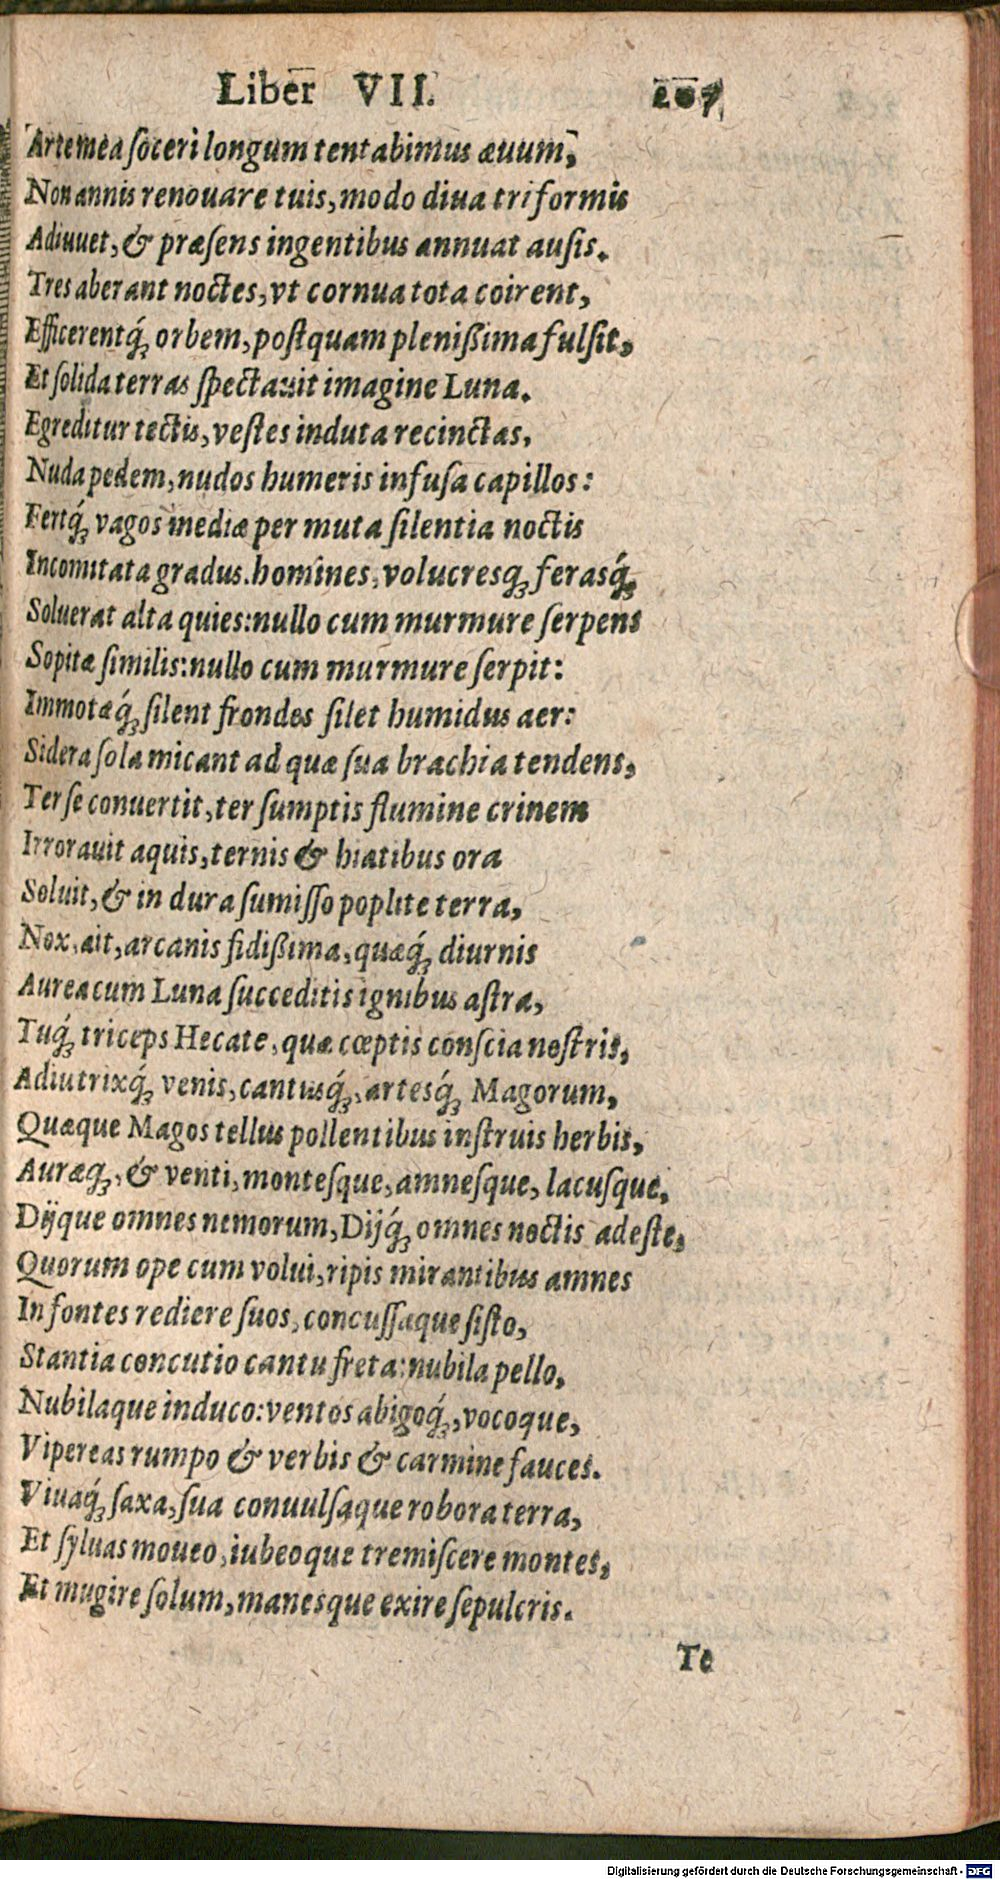 Liber VII. 207
Arte mea soceri longum tentabimus æuum,
Non annis renouare tuis, modo diua triformis
Adiuuet, & præsens ingentibus annuat ausis.
Tres aberant noctes, vt cornua tota coirent,
Efficerentq́; orbem, postquam plenißima fulsit,
Et solida terras spectauit imagine Luna.
Egreditur tectis, vestes induta recinctas,
Nuda pedem, nudos humeris infusa capillos:
Fertq́; vagos mediæ per muta silentia noctis
Incomitata gradus. homines, volucresq; ferasq́;
Soluerat alta quies: nullo cum murmure serpens
Sopitæ similis: nullo cum murmure serpit:
Immotæq́; silent frondes silet humidus aer:
Sidera sola micant ad quæ sua brachia tendens,
Ter se conuertit, ter sumptis flumine crinem
Irrorauit aquis, ternis & hiatibus ora
Soluit, & in dura sumisso poplite terra,
Nox, ait, arcanis fidißima, quæq́; diurnis
Aurea cum Luna succeditis ignibus astra,
Tuq́; triceps Hecate, quæ cœptis conscia nostris,
Adiutrixq́; venis, cantusq́;, artesq́; Magorum,
Quæque Magos tellus pollentibus instruis herbis,
Auræq;, & venti, montesque, amnesque, lacusque,
Dijque omnes nemorum, Dijq́; omnes noctis adeste,
Quorum ope cum volui, ripis mirantibus amnes
In fontes rediere suos, concussaque sisto,
Stantia concutio cantu freta: nubila pello,
Nubilaque induco: ventos abigoq́;, vocoque,
Vipereas rumpo & verbis & carmine fauces.
Viuaq́; saxa, sua conuulsaque robora terra,
Et syluas moueo, iubeoque tremiscere montes,
Et mugire solum, manesque exire sepulcris.
Te
Digitalisierung gefördert durch die Deutsche Forschungsgemeinschaft - DFG